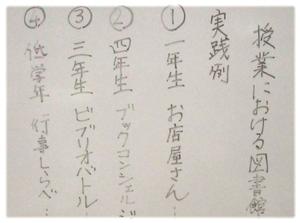 授業における図書館
実践例
① 一年生 お店屋さん…
② 四年生 ブックコンシェルジ
③ 三年生 ビブリオバトル…
④ 低学年 行事しらべ…